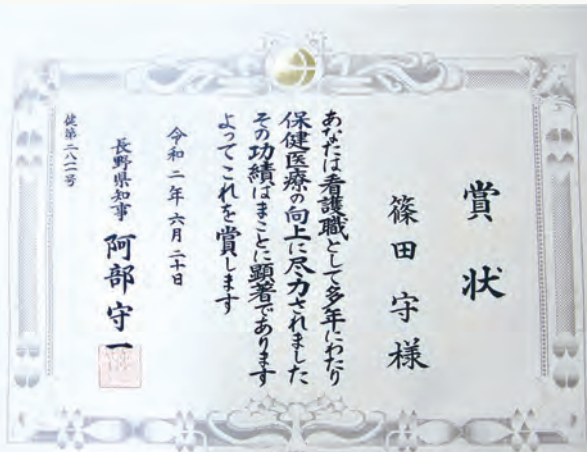 賞状
篠田守様
あなたは看護職として多年にわたり
保健医療の向上に尽力されました
その功績はまことに顕著であります
よってこれを賞します
令和二年六月二十日
長野県知事 阿部守一
健第二八二号